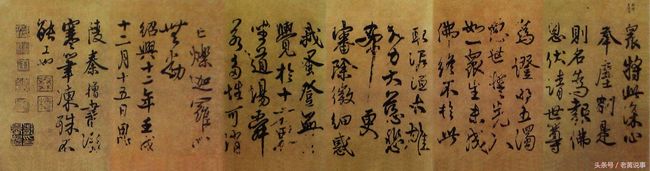 眾將此深心
奉塵剎是
則名為報佛
恩伏請世尊
為證明五濁
惡世誓先入
如一眾生未成
佛終不於此
取泥洹大雄
大力大慈悲
希更
審除微細惑
我蚤登無上
覺於十方界
坐道場舜
若多性可消
亡爍迦羅心
無動
紹興十二年壬戌
十二月十五日思
陵秦僧書
寒筆凍殊不
能工也
头条号 / 老黄说事